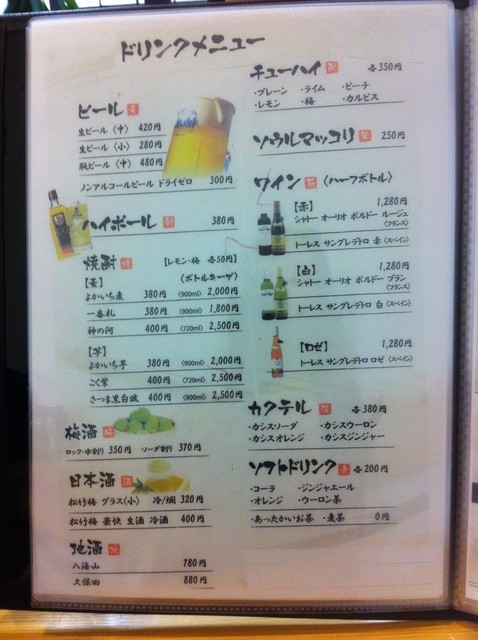 ドリンクメニュー
ビール
生ビール〈中〉 420円
生ビール〈小〉 280円
瓶ビール〈中〉 480円
ノンアルコールビール ドライゼロ 300円
ハイボール 380円
焼酎 【レモン・梅 各50円】
〈ボトルキープ〉
【麦】
よかいち麦 380円 (900ml) 2,000円
一番札 380円 (900ml) 1,800円
神の河 400円 (720ml) 2,500円
【芋】
よかいち芋 380円 (900ml) 2,000円
こく紫 400円 (720ml) 2,500円
さつま黒白波 400円 (900ml) 2,500円
梅酒
ロック・水割り 350円 ソーダ割り 370円
日本酒
松竹梅 グラス〈小〉 冷/燗 320円
松竹梅 豪快 生酒 冷酒 400円
地酒
八海山 780円
久保田 880円
チューハイ 各350円
・プレーン ・ライム ・ピーチ
・レモン ・梅 ・カルピス
ソウルマッコリ 250円
ワイン 〈ハーフボトル〉
【赤】 1,280円
シャトー オーリオ ボルドー ルージュ
(フランス)
トーレス サングレデトロ 赤 (スペイン)
【白】 1,280円
シャトー オーリオ ボルドー ブラン
(フランス)
トーレス サングレデトロ 白 (スペイン)
【ロゼ】 1,280円
トーレス サングレデトロ ロゼ (スペイン)
カクテル 各380円
・カシスソーダ ・カシスウーロン
・カシスオレンジ ・カシスジンジャー
ソフトドリンク 各200円
・コーラ ・ジンジャエール
・オレンジ ・ウーロン茶
・あったかいお茶 ・麦茶 0円